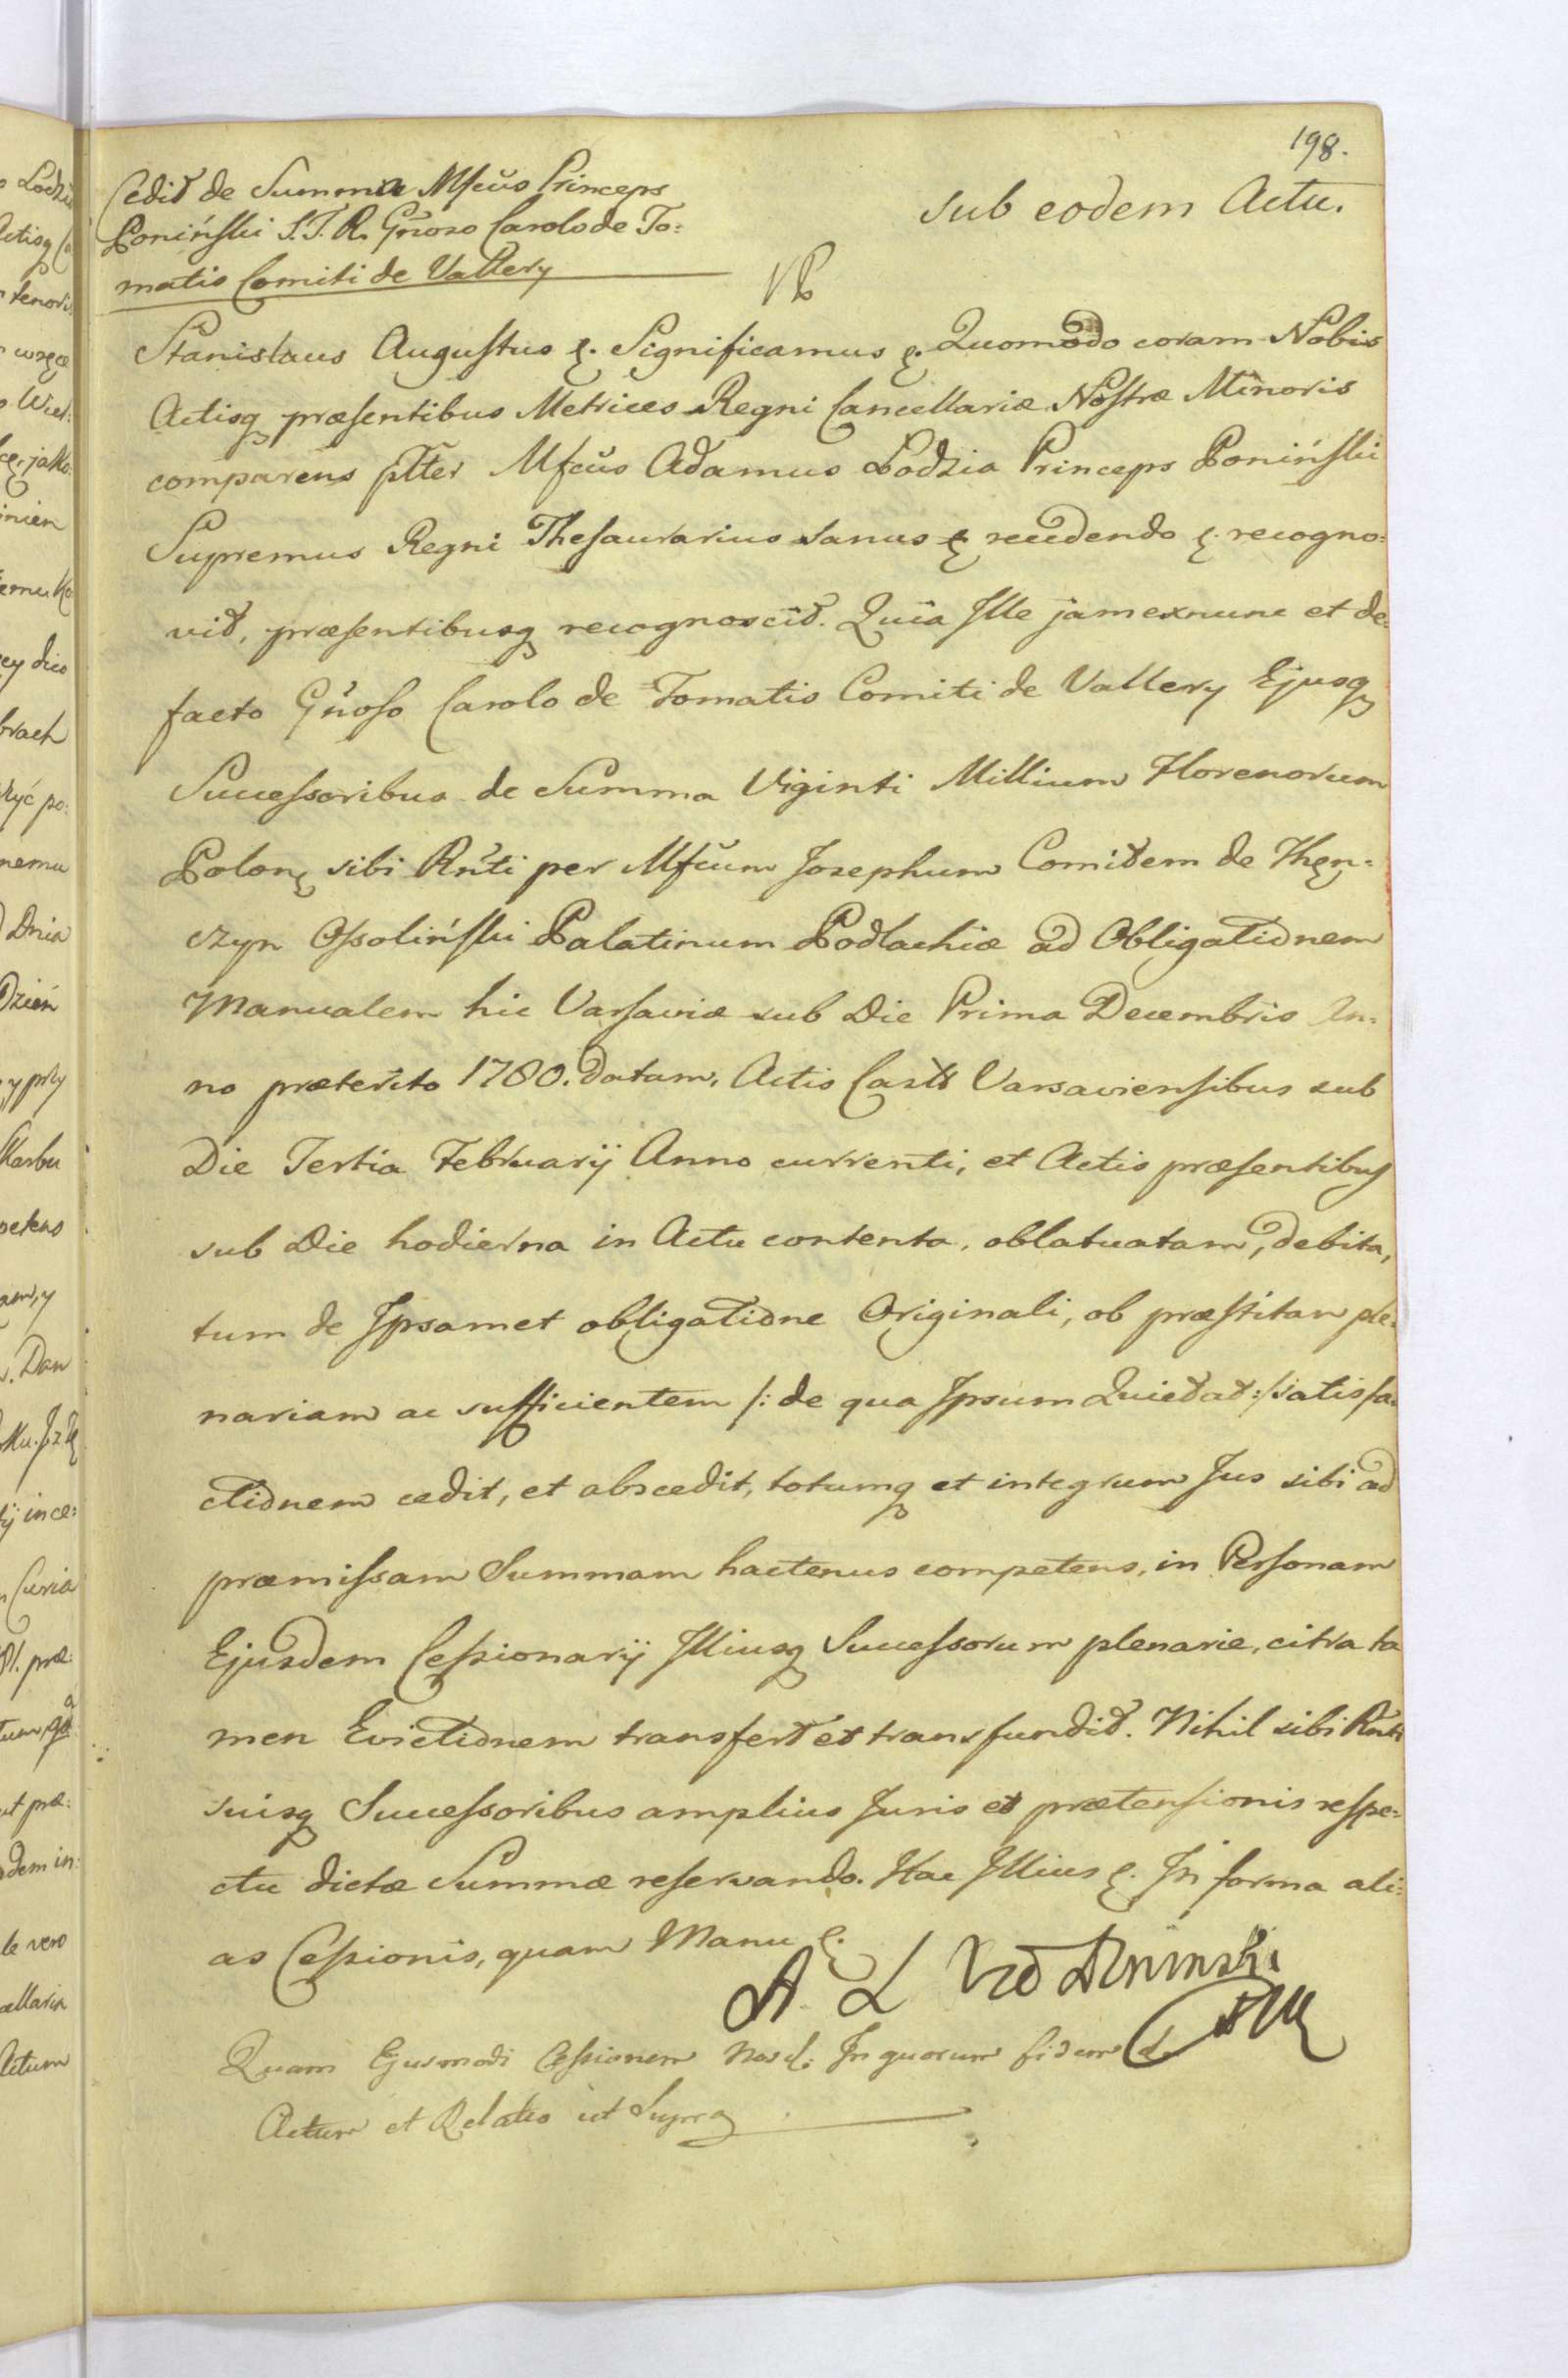 198.
Sub eodem Actu.
Cedit de Summa Mfcus Princeps
Poniński S.T.R. Gnoso Carolo de To=
matis Comiti de Vallery
Stanislaus Augustus &. Significamus &. Quomodo coram Nobis
Actisq præsentibus Metrices Regni Cancellariæ Nostræ Minoris
comparens pltter Mfcus Adamus Łodzia Princeps Poniński
Supremus Regni Thesaurarius sanus & recedendo &. recogno=
vit, præsentibusq recognoscit. Quia Ille jam exnunc et de=
facto Gnoso Carolo de Tomatis Comiti de Vallery Ejusq
Successoribus de Summa Viginti Millium Florenorum
Polon, sibi Rnti per Mfcum Josephum Comitem de Thęn=
czyn Ossoliński Palatinum Podlachiæ ad Obligationem
Manualem hic Varsaviæ sub Die Prima Decembris An=
no præterito 1780. datam, Actis Castr Varsaviensibus sub
Die Tertia Februarij Anno currenti, et Actis præsentibus
sub Die hodierna in Actu contenta, oblatuatam, debita,
tum de Ipsamet obligatione Originali, ob præstitam ple=
nariam ac sufficientem /: de qua Ipsum Quietat :/ satisfa=
ctionem cedit, et abscedit, totumq et integrum Jus sibi ad
præmissam Summam hactenus competens, in Personam
Ejusdem Cessionarij Illiusq Successorum plenarie, citra ta
men Evictionem transfert et transfundit. Nihil sibi Rnti
suisq Successoribus amplius Juris et prætensionis respe=
ctu dictæ Summæ reservando. Hac Illius &. In forma ali=
as Cessionis, quam Manu &.
A Ł Poninski
Quam Ejusmodi Cessionem Nos &. In quorum fidem &.
Actum et Relatio ut Supra